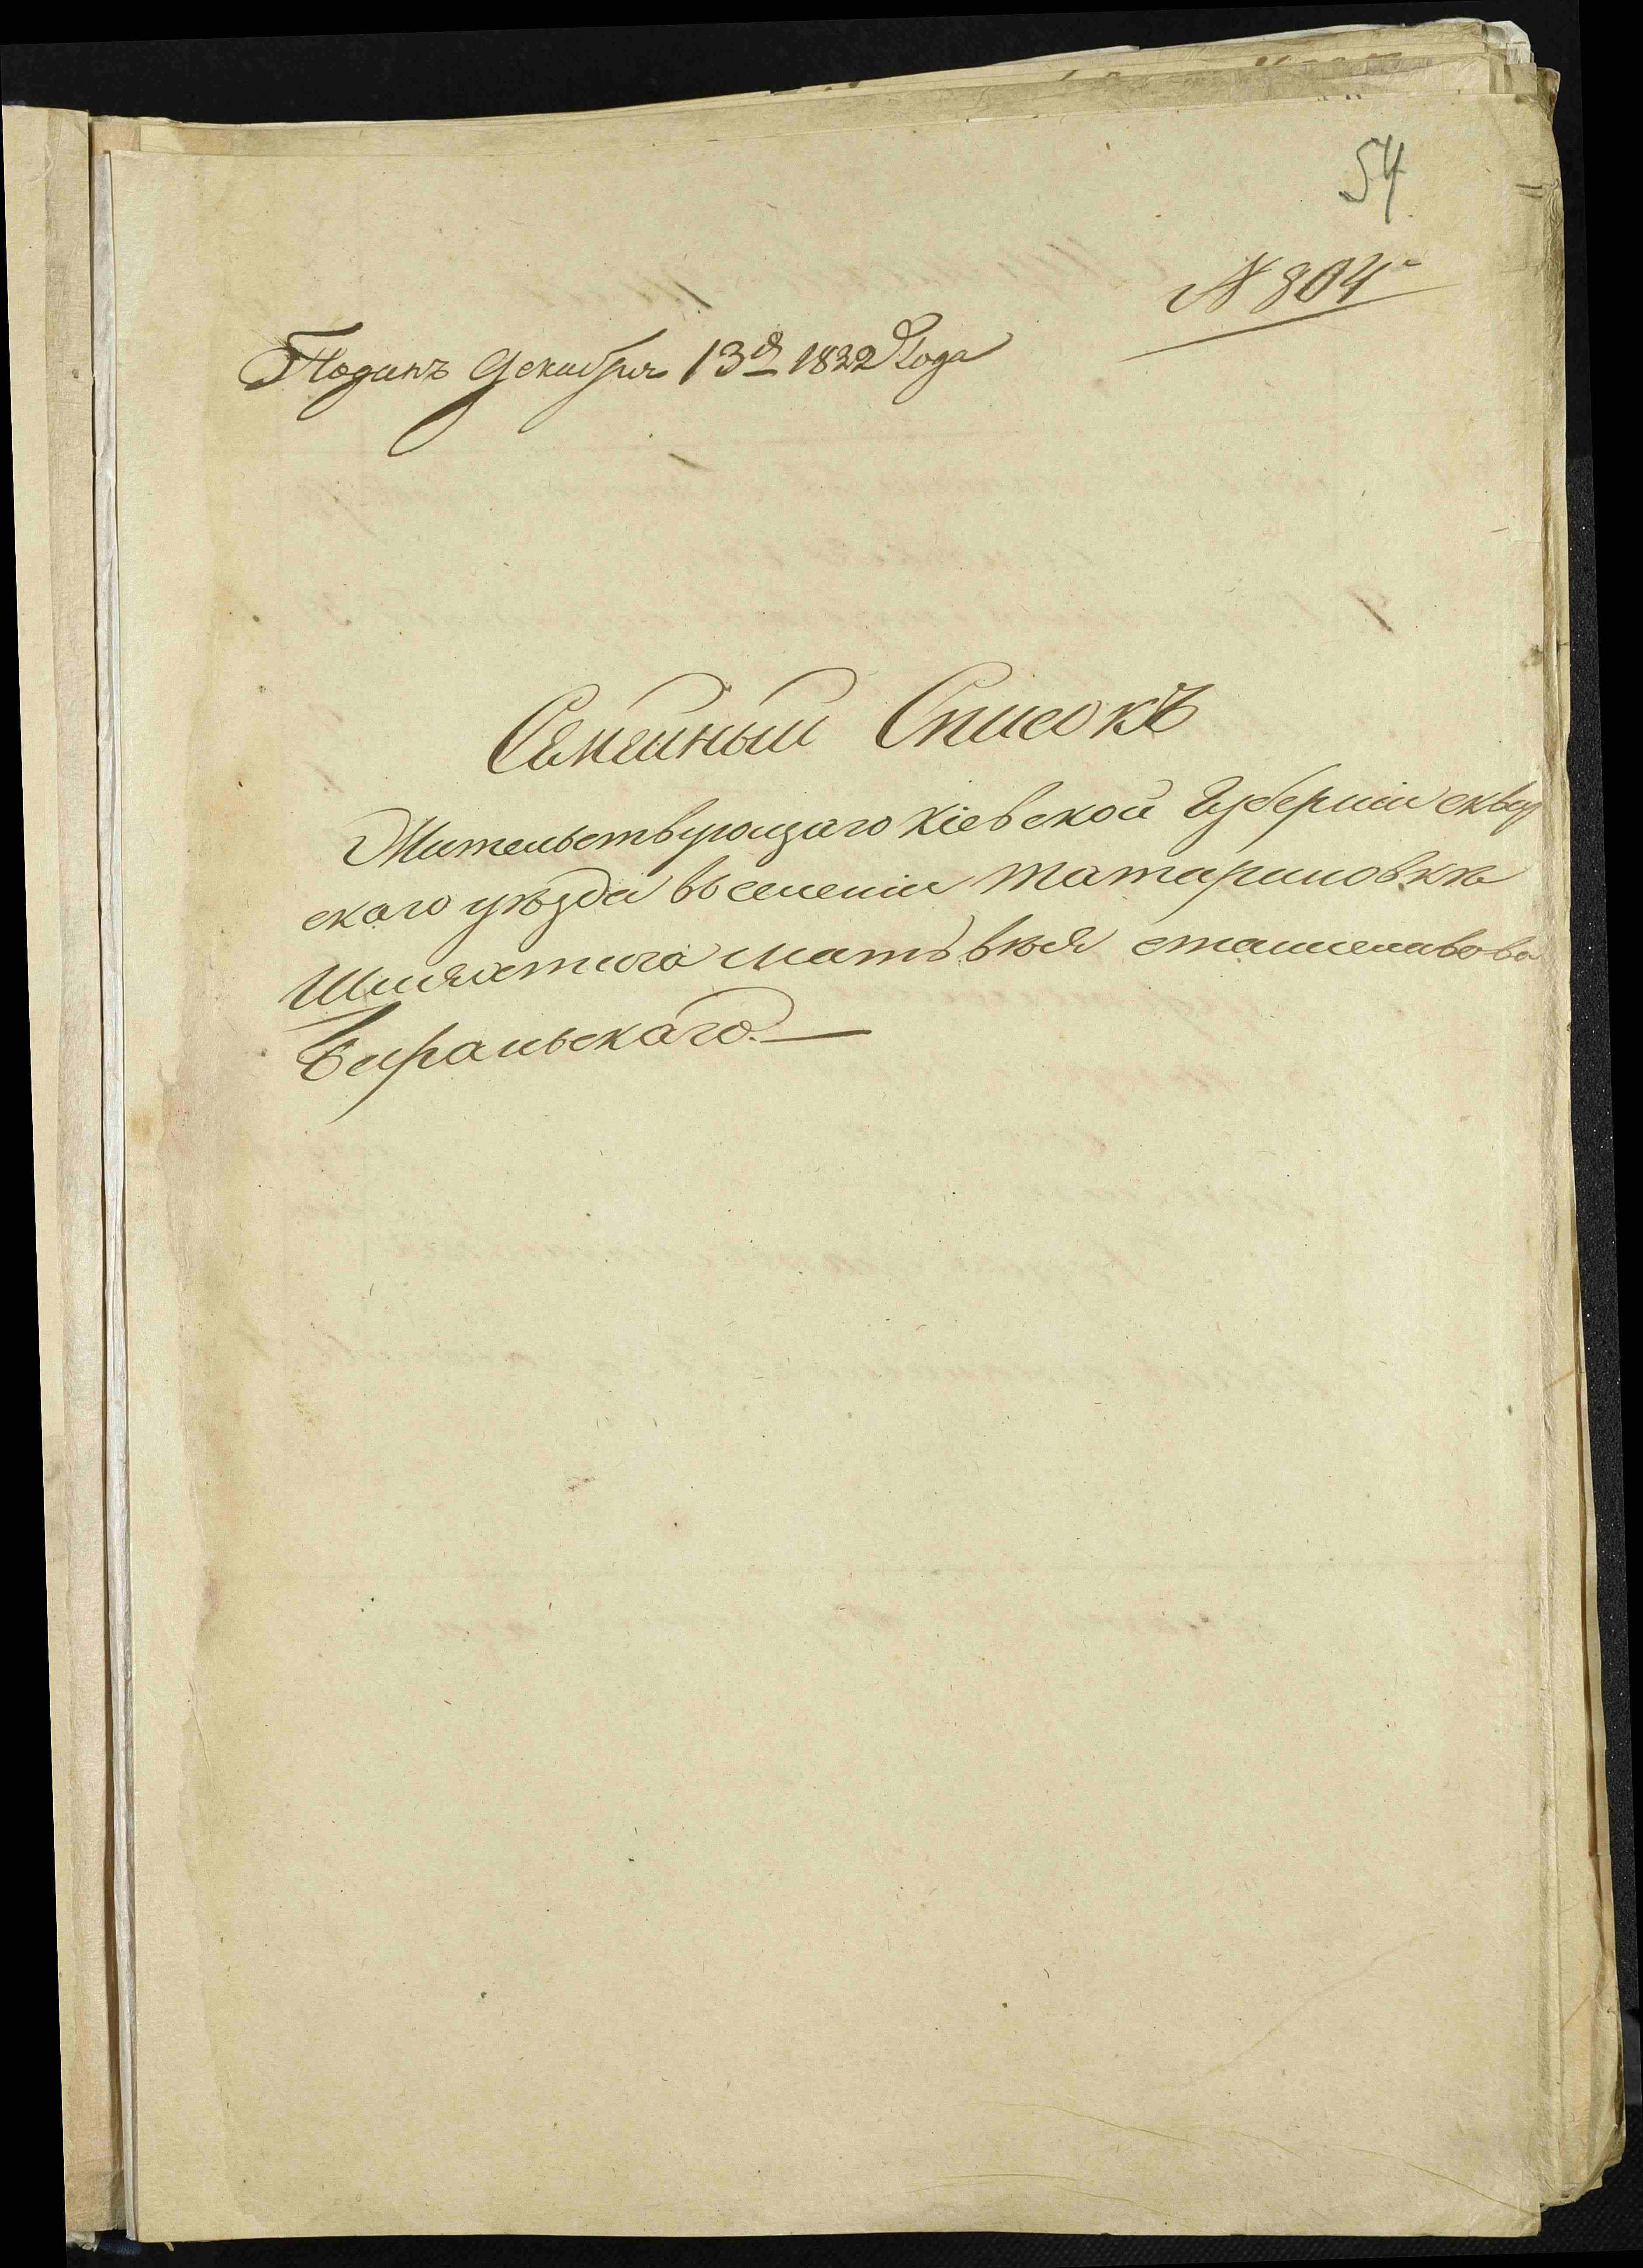 54
N 804
Поданъ Декабря 13го 1832 Года
Семейный Списокъ
Жительствующаго Кіевской Губерніи сквир
скаго уѣзда въ селеніи Татариновкѣ
Шляхтича Матвѣя станиславова